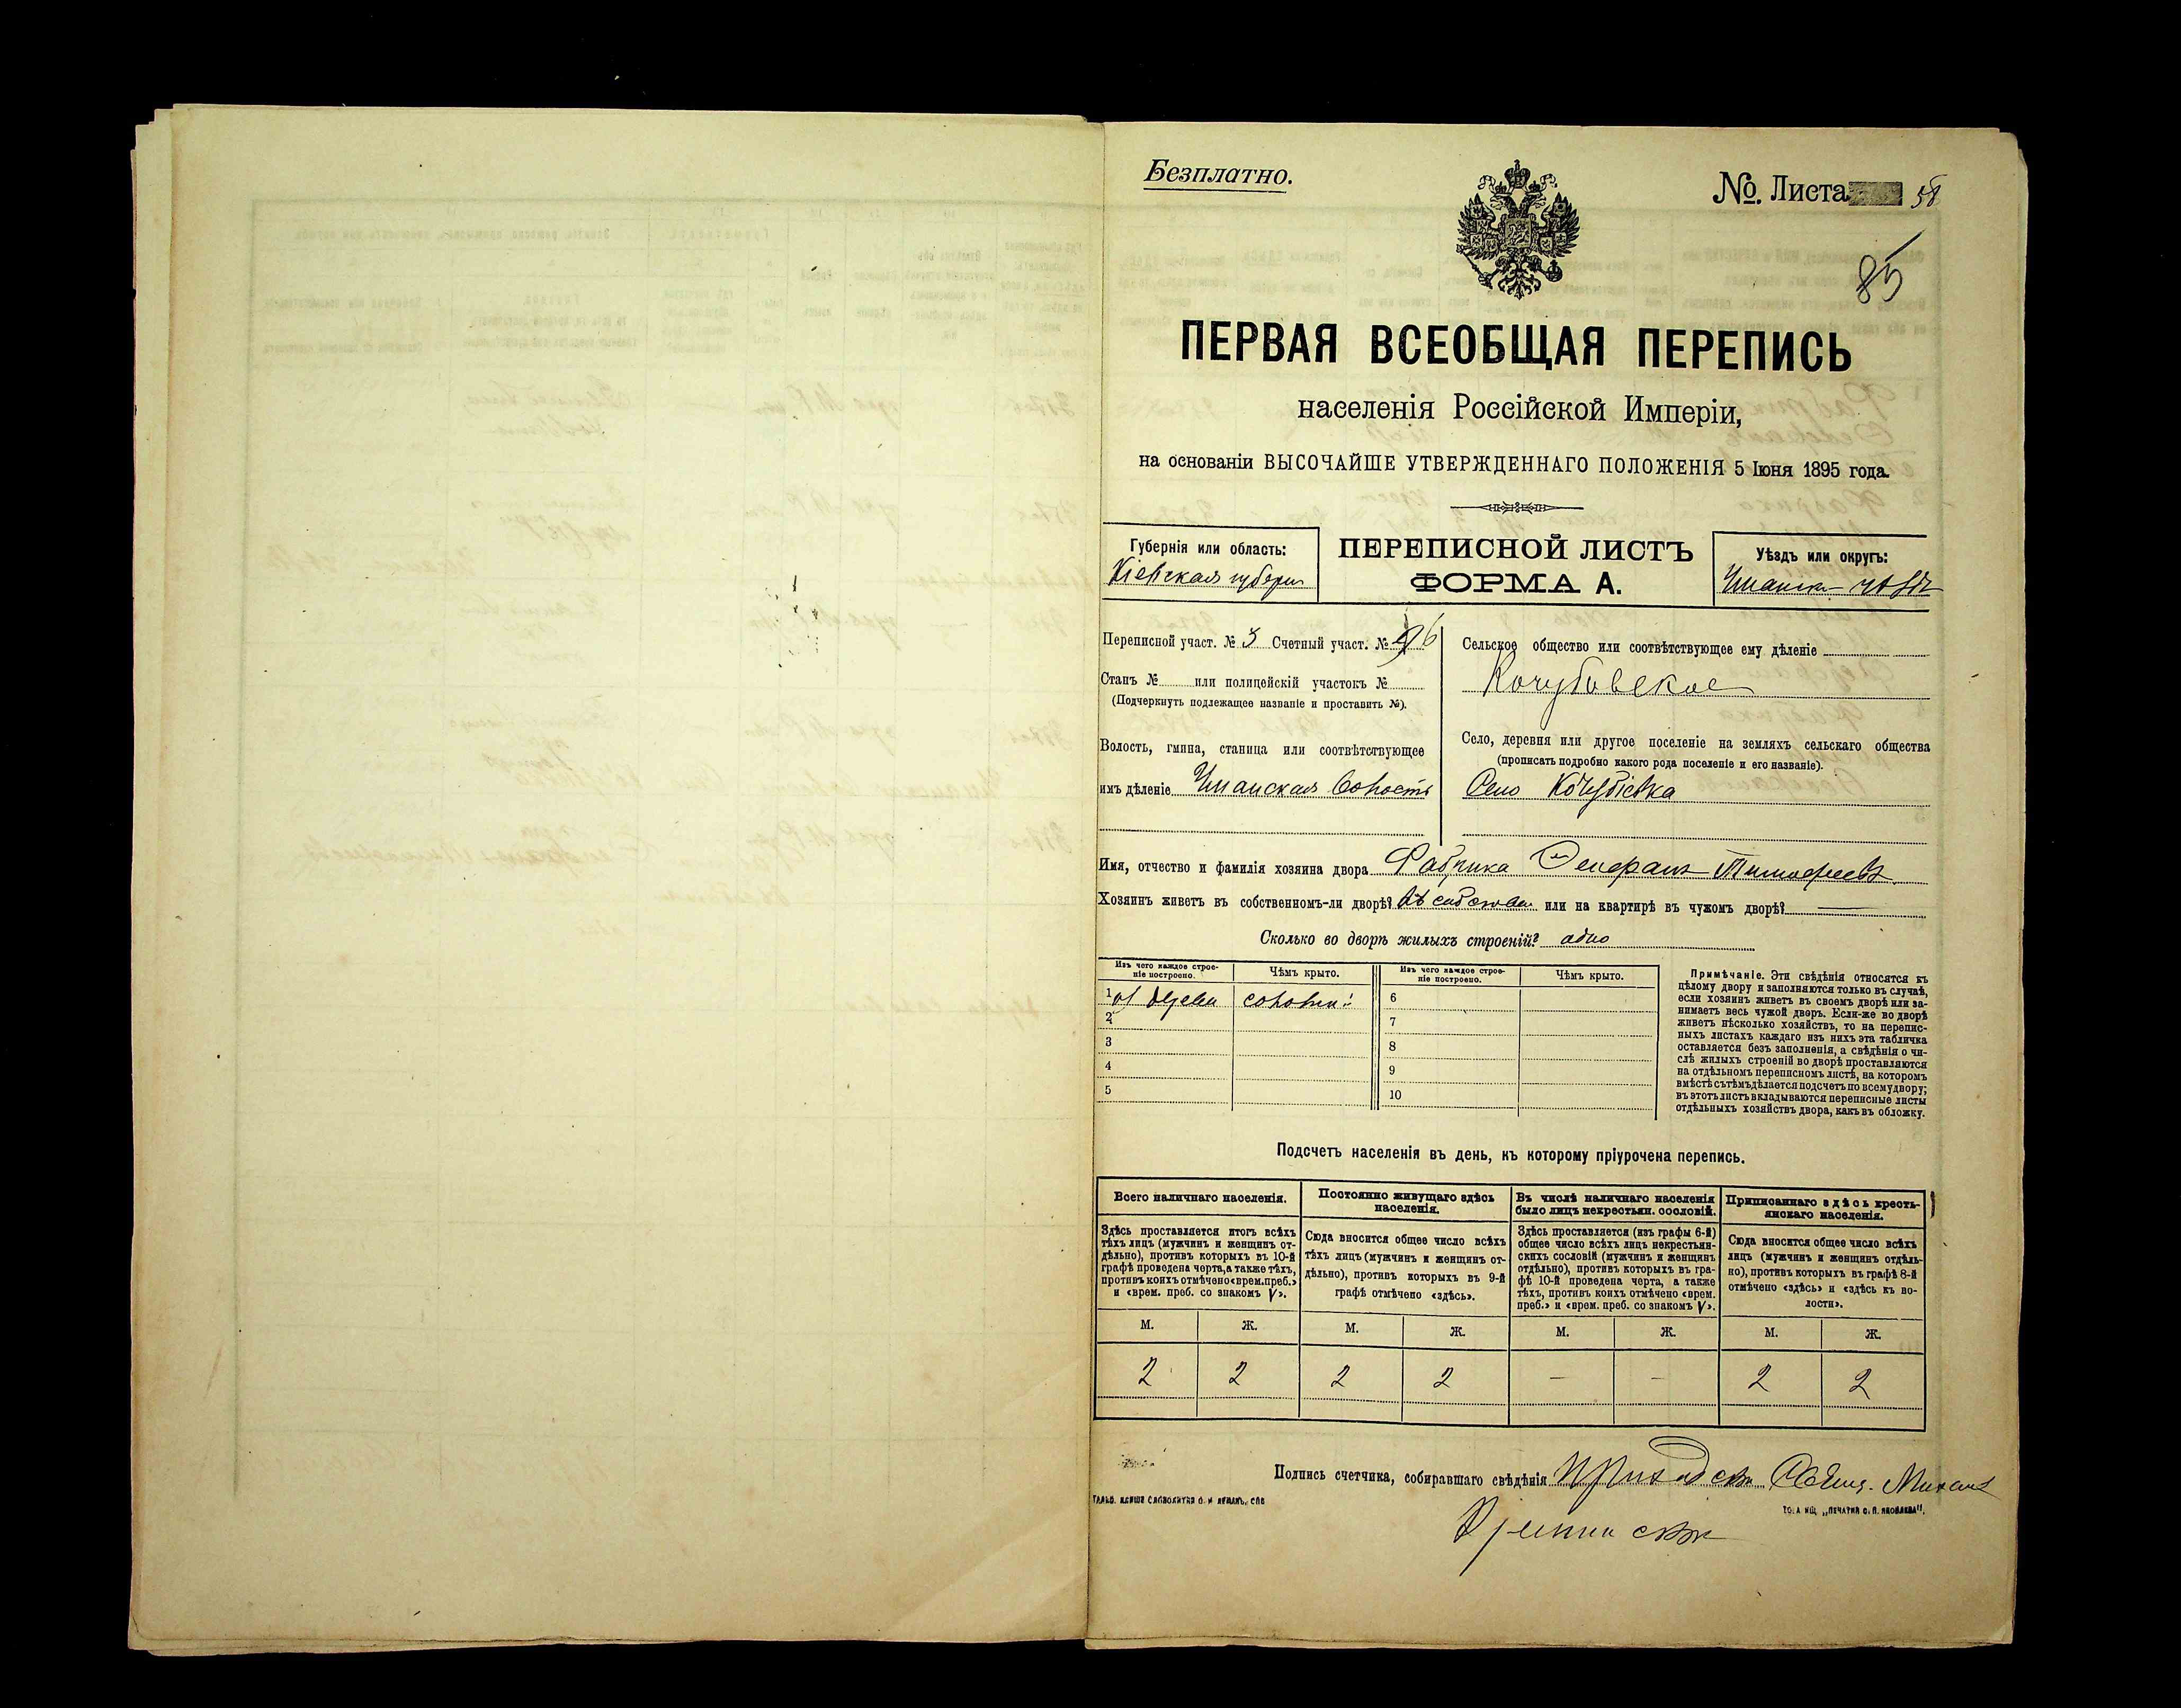 Безплатно.
№. Листа 58
85
ПЕРВАЯ ВСЕОБЩАЯ ПЕРЕПИСЬ
населенія Россійской Имперіи,
на основаніи ВЫСОЧАЙШЕ УТВЕРЖДЕННАГО ПОЛОЖЕНІЯ 5 Іюня 1895 года.
Губернія или область:
Кіевская губерн
ПЕРЕПИСНОЙ ЛИСТЪ
ФОРМА А.
Уѣздъ или округъ:
Переписной участ. № 3 Счетный участ. №
Станъ № или полицейскій участокъ №
(Подчеркнуть подлежащее названіе и проставить №).
Волость, гмина, станица или соотвѣтствующее
имъ дѣленіе Уманская волость
Сельское общество или соотвѣтствующее ему дѣленіе
Кочубовское
Село, деревня или другое поселеніе на земляхъ сельскаго общества
(прописать подробно какого рода поселеніе и его названіе).
Село Кочубіевка
Имя, отчество и фамилія хозяина двора Фабрика Тимофеевъ
Хозяинъ живетъ въ собственномъ-ли дворѣ? или на квартирѣ въ чужомъ дворѣ?
Сколько во дворѣ жилыхъ строеній? одно
Изъ чего каждое строе-
ніе построено.
Чѣмъ крыто.
Изъ чего каждое строе-
ніе построено.
Чѣмъ крыто.
1
2
3
4
5
6
7
8
9
10
Примѣчаніе. Эти свѣдѣнія относятся къ
цѣлому двору и заполняются только въ случаѣ,
если хозяинъ живетъ въ своемъ дворѣ или за-
нимаетъ весь чужой дворъ. Если-же во дворѣ
живетъ нѣсколько хозяйствъ, то на перепис-
ныхъ листахъ каждаго изъ нихъ эта табличка
оставляется безъ заполненія, а свѣдѣнія о чи-
слѣ жилыхъ строеній во дворѣ проставляются
на отдѣльномъ переписномъ листѣ, на которомъ
вмѣстѣ съ тѣмъ дѣлается подсчетъ по всему двору;
въ этотъ листъ вкладываются переписные листы
отдѣльныхъ хозяйствъ двора, какъ въ обложку.
Подсчетъ населенія въ день, къ которому пріурочена перепись.
Всего наличнаго населенія.
Здѣсь проставляется итогъ всѣхъ
тѣхъ лицъ (мужчинъ и женщинъ от-
дѣльно), противъ которыхъ въ 10-й
графѣ проведена черта, а также тѣхъ,
противъ коихъ отмѣчено «врем. преб.»
и «врем. преб. со знакомъ V».
Постоянно живущаго здѣсь
населенія.
Сюда вносится общее число всѣхъ
тѣхъ лицъ (мужчинъ и женщинъ от-
дѣльно), противъ которыхъ въ 9-й
графѣ отмѣчено «здѣсь».
Въ числѣ наличнаго населенія
было лицъ некрестьян. сословій.
Здѣсь проставляется (изъ графы 6-й)
общее число всѣхъ лицъ некрестьян-
скихъ сословій (мужчинъ и женщинъ
отдѣльно), противъ которыхъ въ гра-
фѣ 10-й проведена черта, а также
тѣхъ, противъ коихъ отмѣчено «врем.
преб.» и «врем. преб. со знакомъ V».
Приписаннаго здѣсь кресть-
янскаго населенія.
Сюда вносится общее число всѣхъ
лицъ (мужчинъ и женщинъ отдѣль-
но), противъ которыхъ въ графѣ 8-й
отмѣчено «здѣсь» и «здѣсь къ во-
лости».
М. Ж. М. Ж. М. Ж. М. Ж.
2 2 2 2 — — 2 2
Подпись счетчика, собиравшаго свѣдѣнія